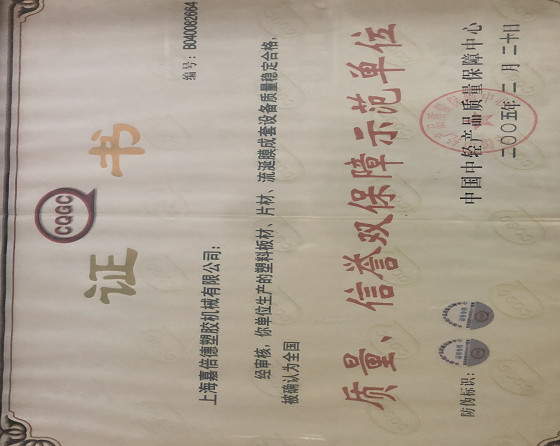 证 书
CQGC
编号：B040082664
上海嘉倍德塑胶机械有限公司：
经审核，你单位生产的塑料板材、片材、流涎膜成套设备质量稳定合格，
被确认为全国
质量、信誉双保障示范单位
防伪标识：
中国中轻产品质量保障中心
二00五年二月二十日